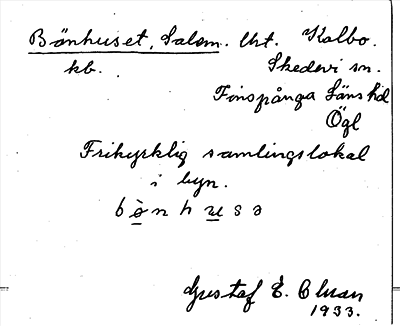 Bönhuset, Salem. Urt. Kolbo.
kb. Skedevi sn.
Finspånga Läns hd
Ögl
Frikyrklig samlingslokal
i byn.
Gustaf E.
1933.